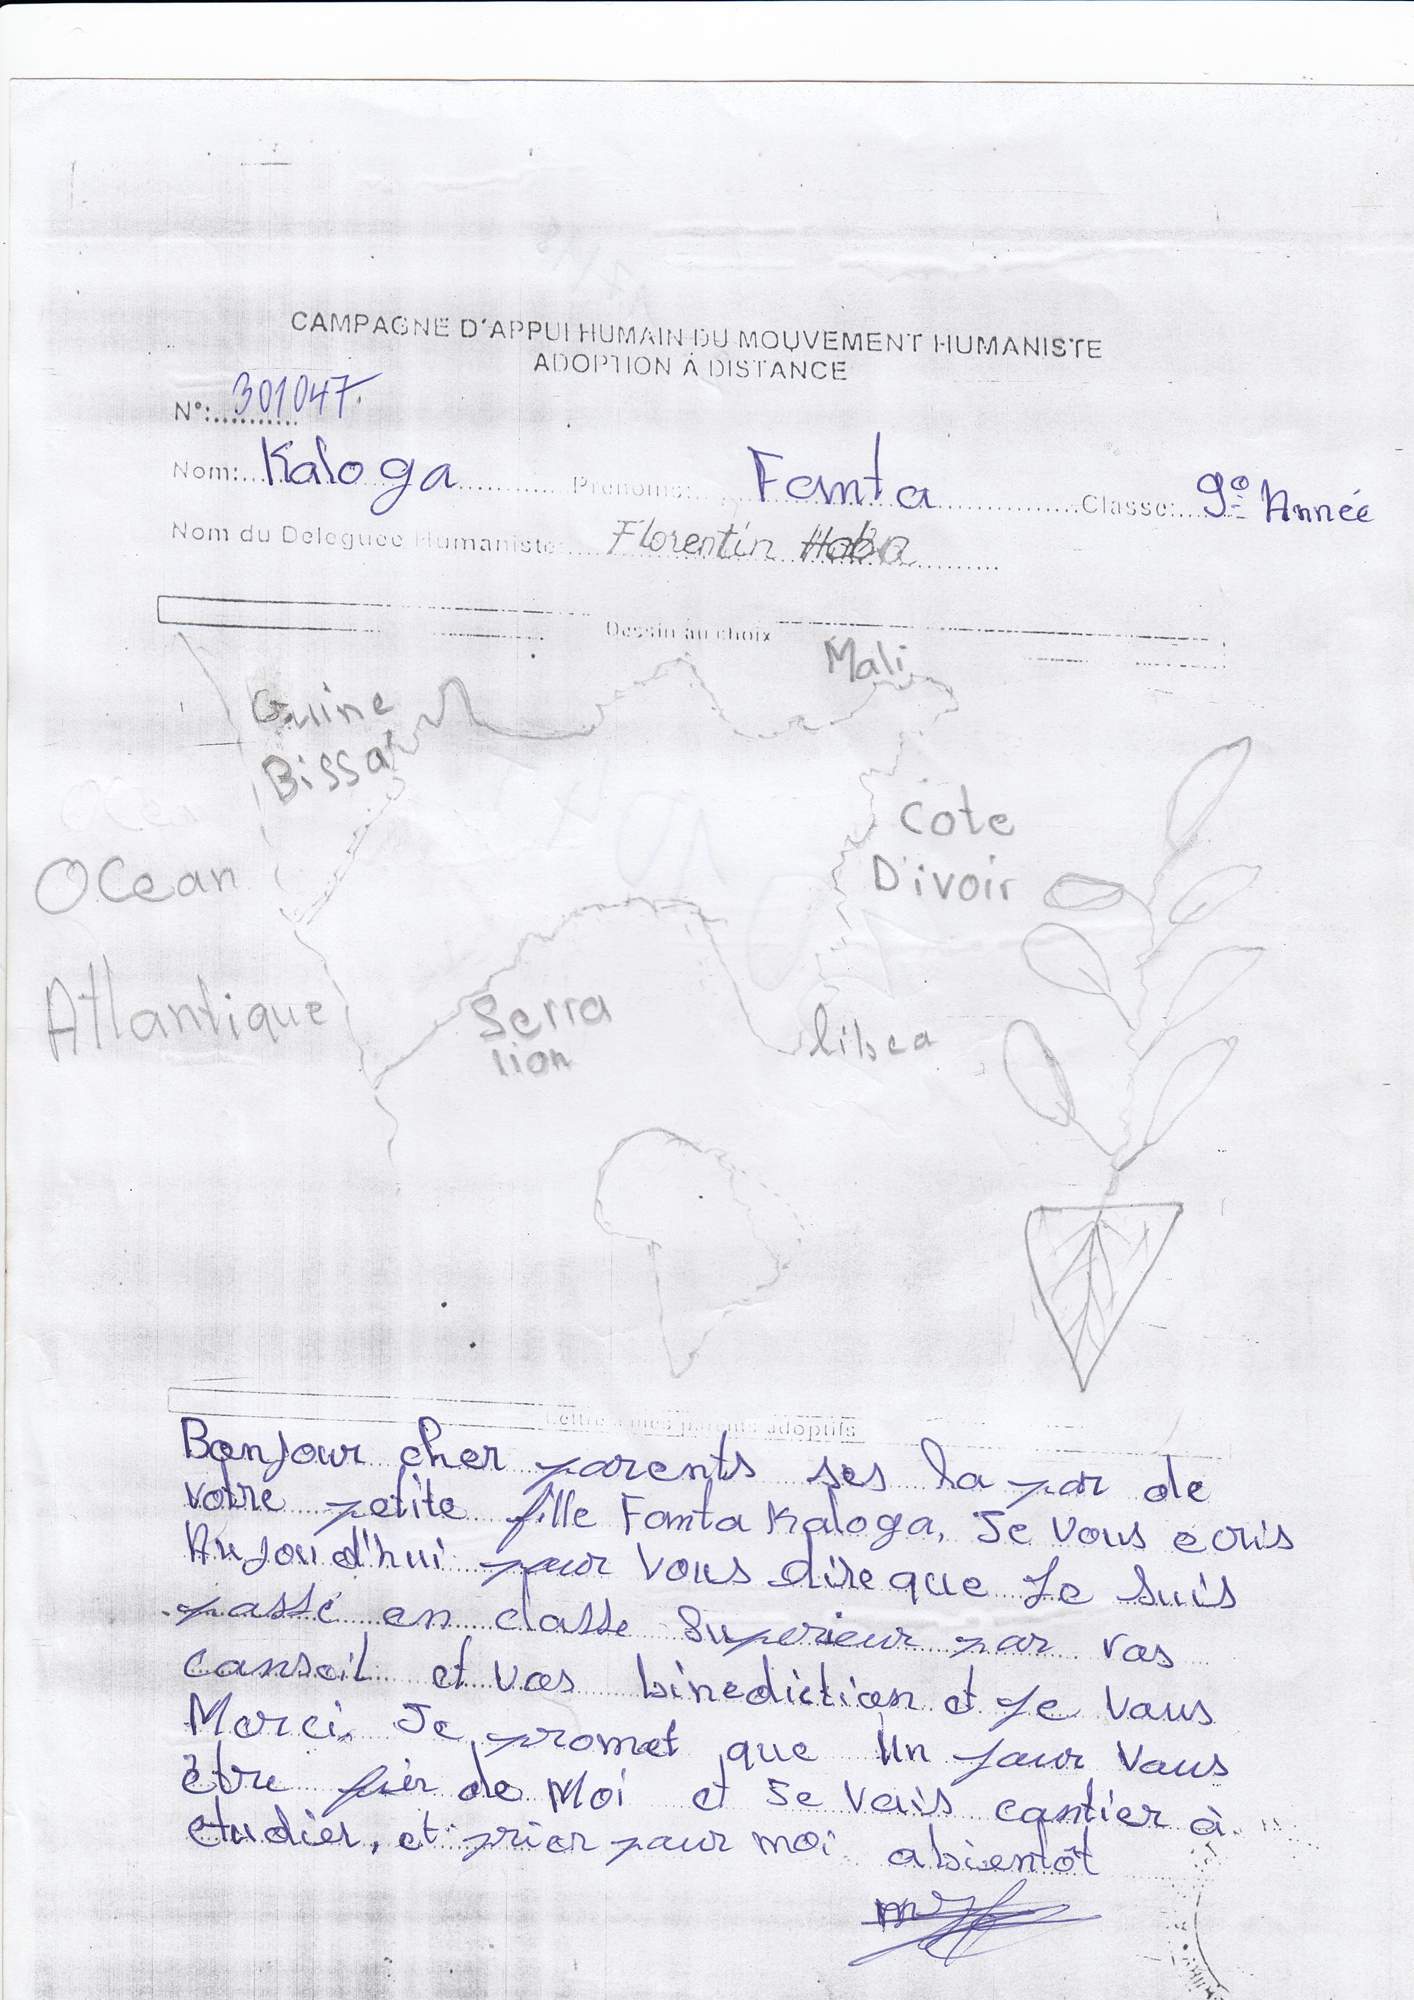 CAMPAGNE D'APPUI HUMAIN DU MOUVEMENT HUMANISTE
ADOPTION À DISTANCE
N°: 301047
Nom: Kaloga Prénoms: Fanta Classe: 9e Année
Nom du Deleguée Humaniste: Florentin Haba
Dessin au choix
Mali
Guine
Bissa
Cote
Ocean
D'ivoir
Atlantique
Serra
lion
libea
Lettre à mes parents adoptifs
Bonjour cher parents ses la par de
votre petite fille Fanta Kaloga. Je vous ecris
Aujoud'hui pour vous dire que Je suis
passé en classe Superieur par vos
consoil et vos binediction et Je vous
Merci. Je promet que un jour vous
être fièr de Moi et Je vais contier à
etudier, et prier pour moi abientôt